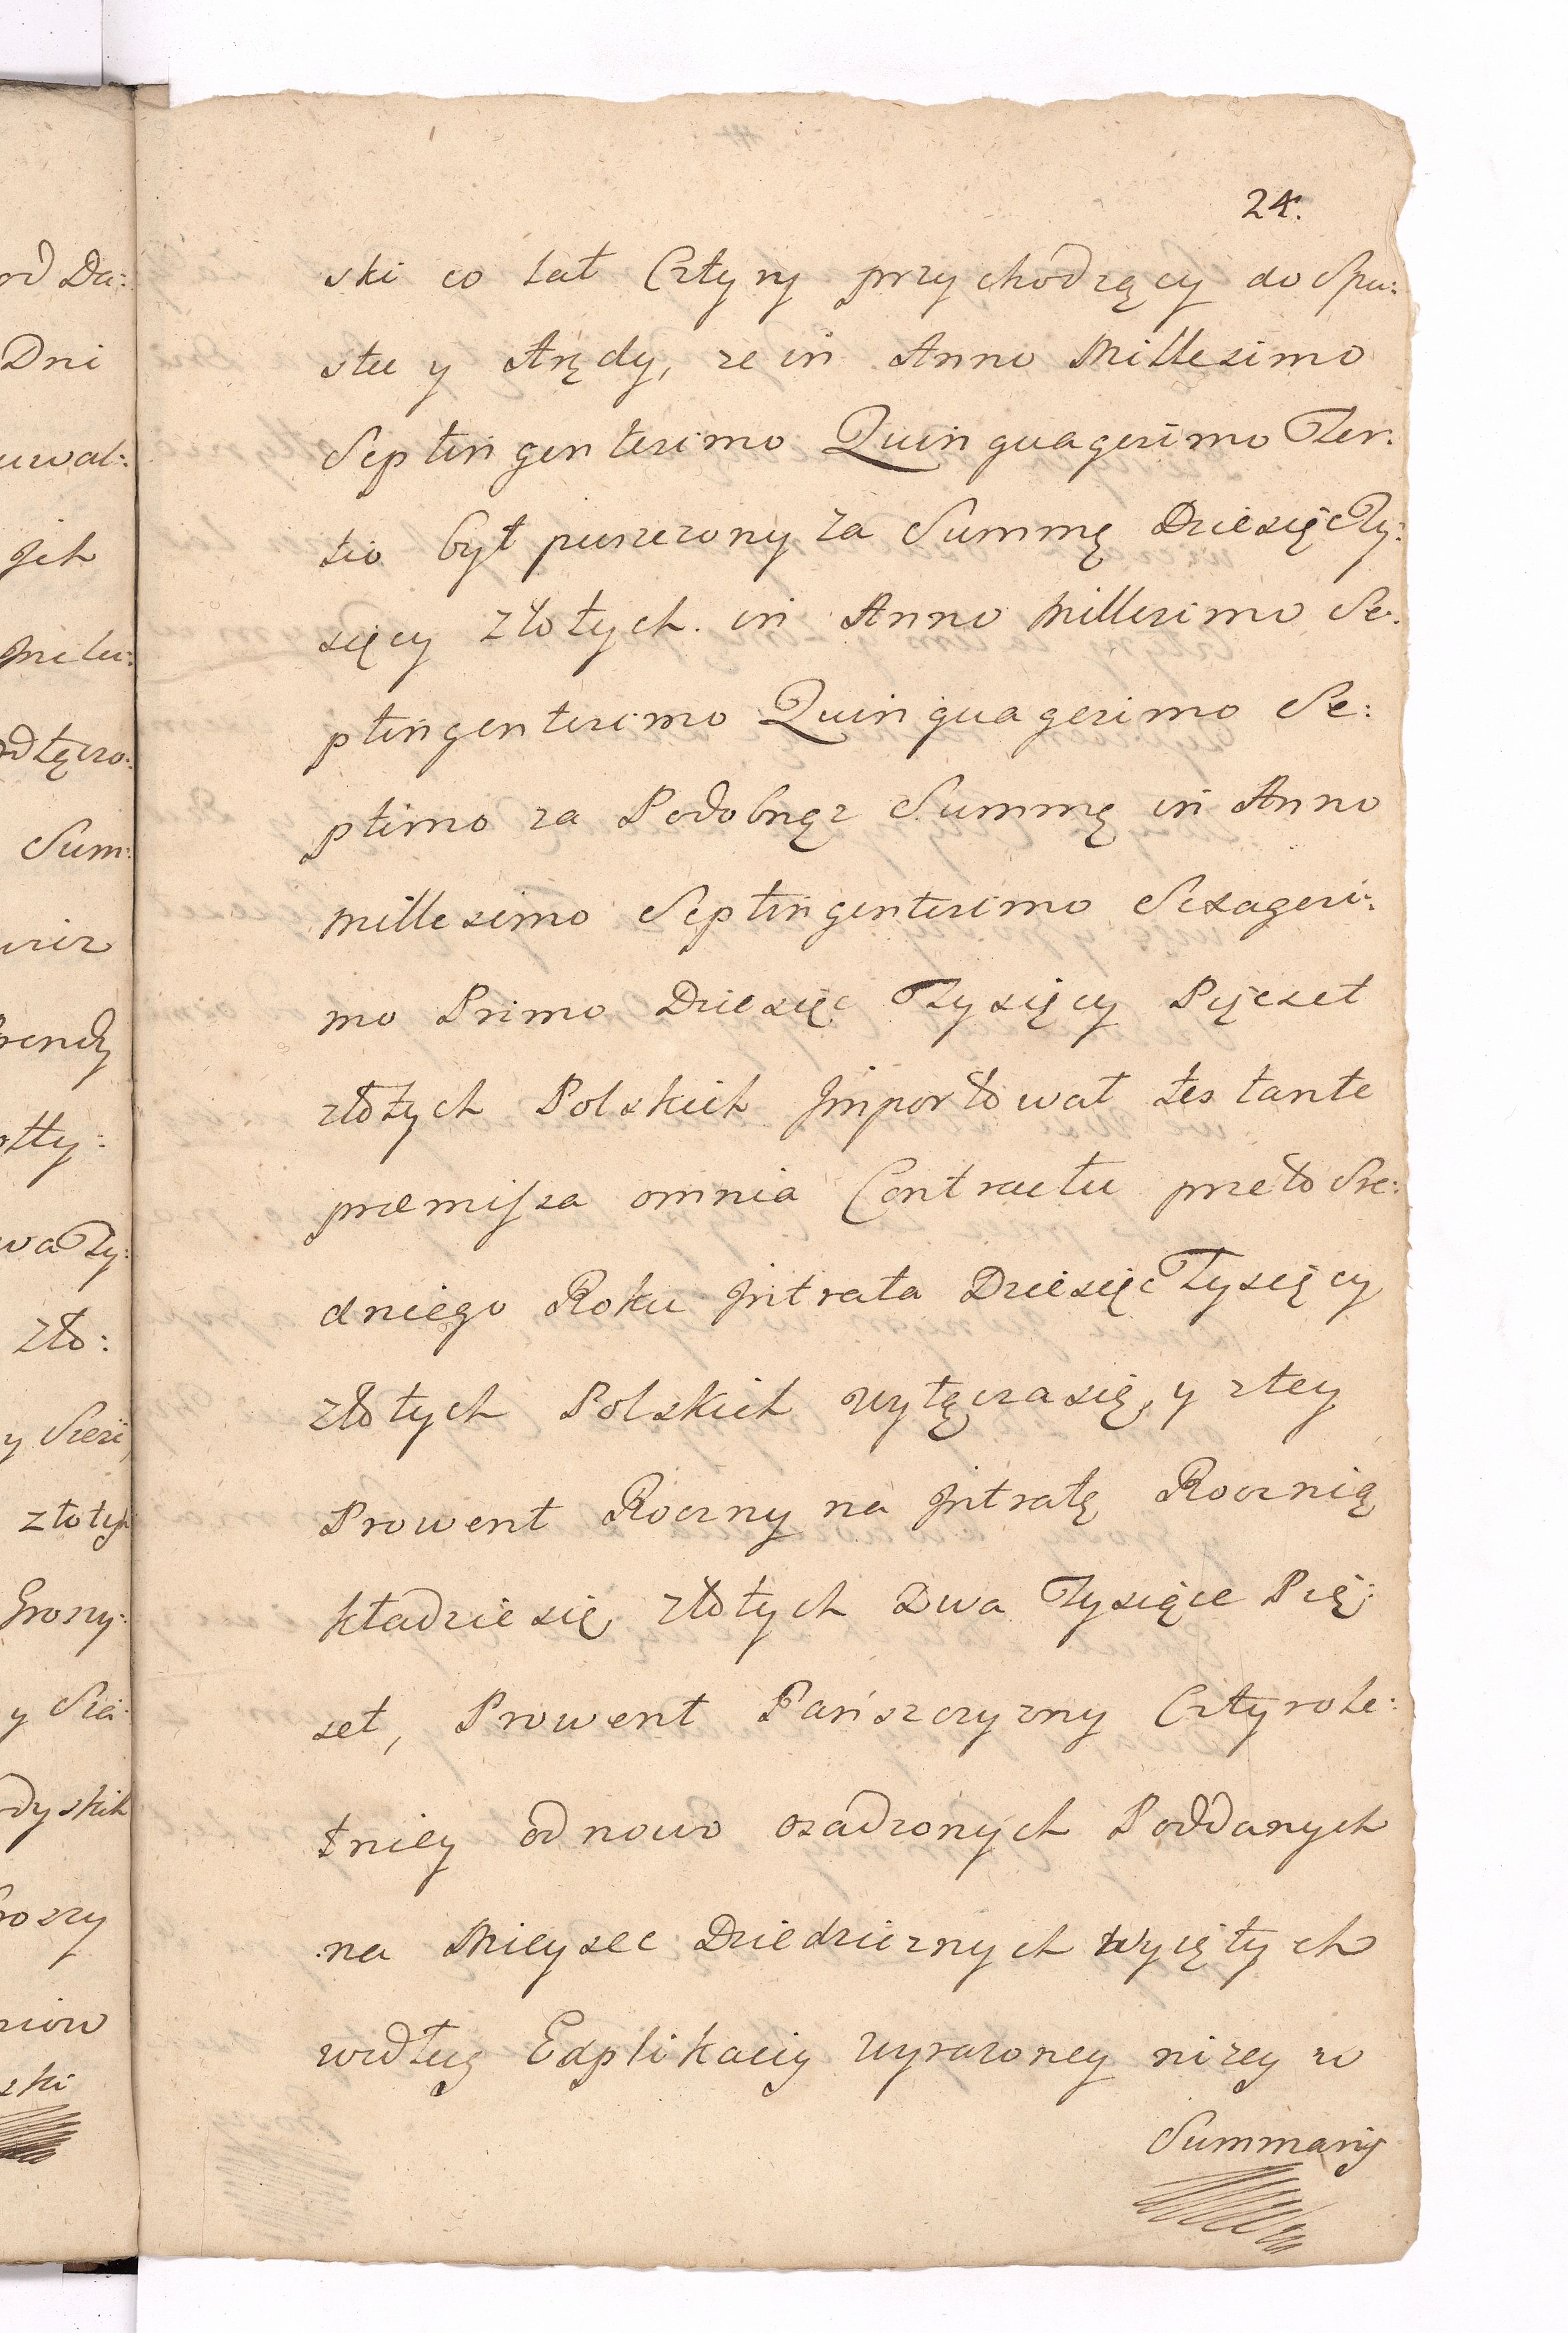 24.
ski co lat Cztyry przychodzący do Spu:
stu y Arędy, ze in Anno Millesimo
Septingentesimo Quinquagesimo Ter:
tio był puszczony za Summę Dziesięc Ty:
sięcy złotych. in Anno Millesimo Se:
ptingentesimo Quinquagesimo Se:
ptimo za Podobnąz Summę in Anno
Millesimo Septingentesimo Sexagesi:
mo Primo Dziesięc Tysięcy Pięcset
złotych Polskich Importował testante
præmissa omnia Contractu przeto Sre:
dniego Roku Intrata Dziesięc Tysięcy
złotych Polskich wytącza się, y z tey
Prowent Roczny na Intratę Rocznią
kładzie się złotych Dwa Tysiące Pię:
set, Prowent Pańszczyzny Cztyrole:
tniey od nowo osadzonych Poddanych
na Mieysec Dziedzicznych Wyiętych
według Explikacij wyrazoney nizey w
Summarij
od Da:
Dni
uwal:
Ich
Sum:
rendy
wa Ty:
zło:
y Sześ
złotych
Groszy:
dyskich
roszy
ski